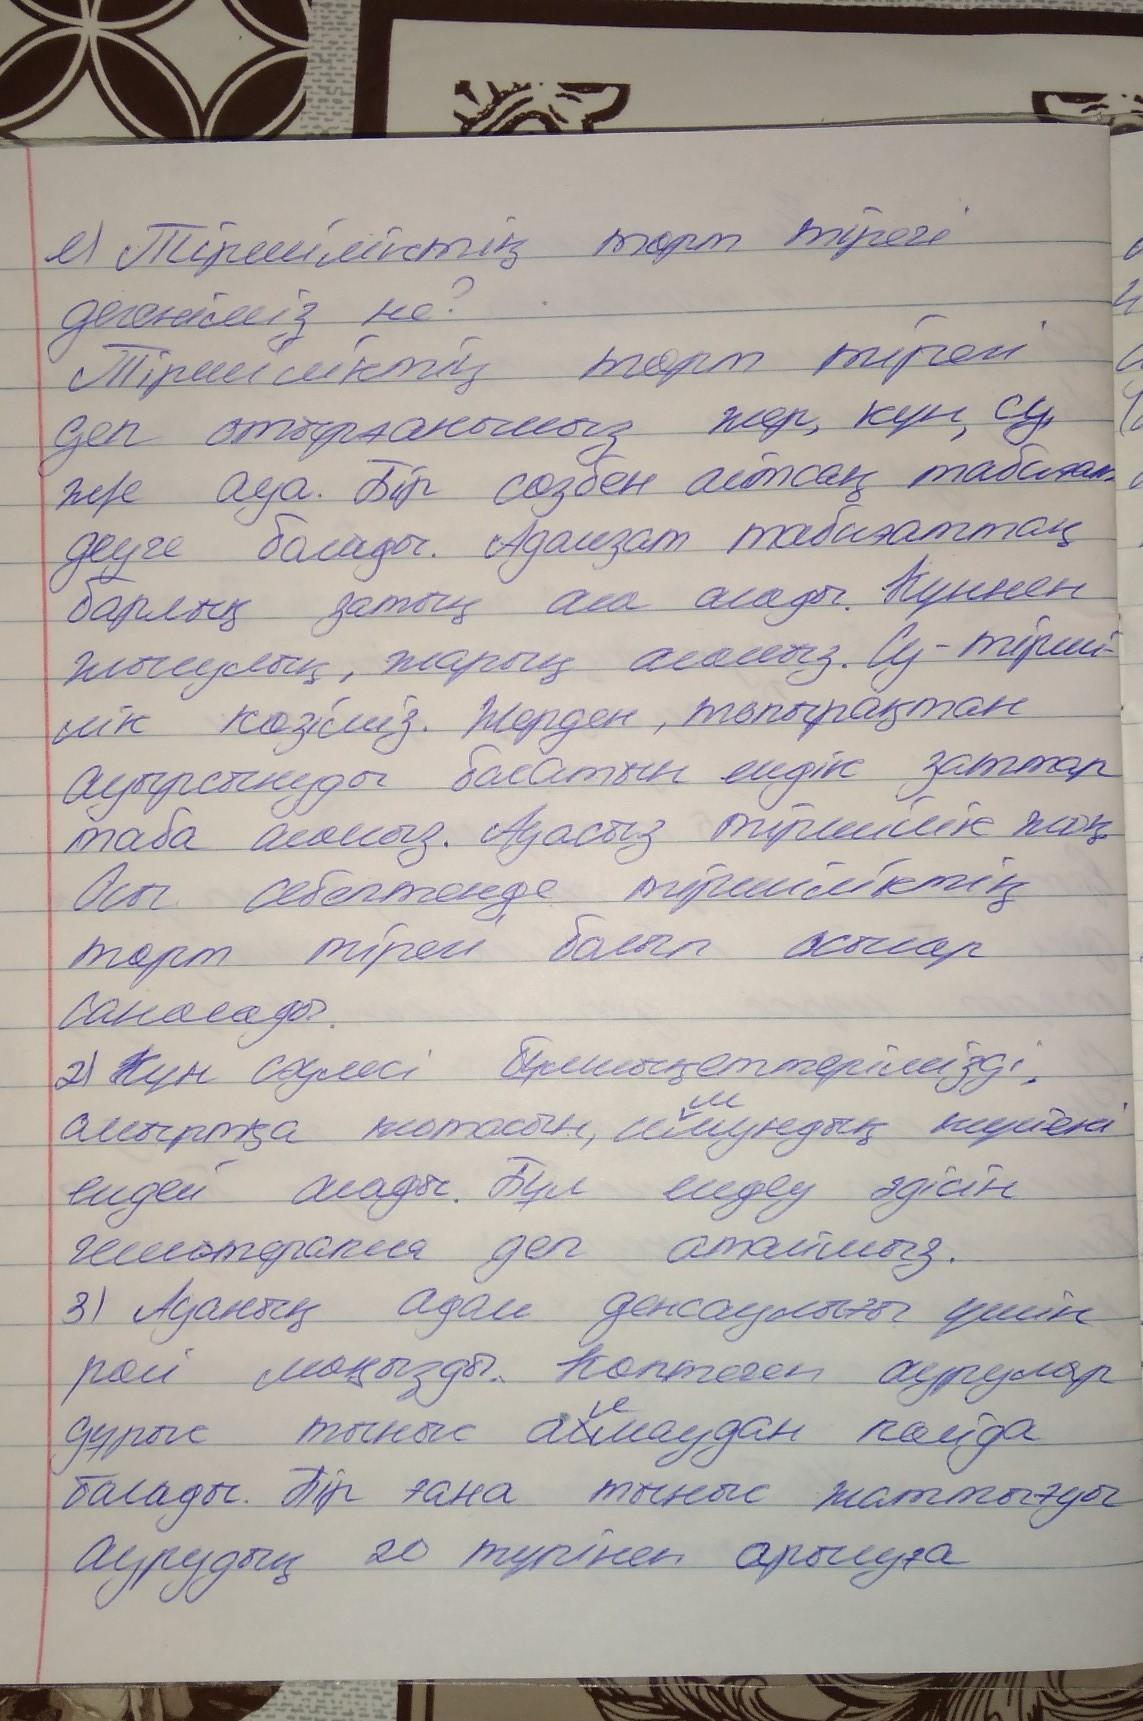 1) Тіршіліктің төрт тірегі
дегеніміз не?
Тіршіліктің төрт тірегі
деп отырғанымыз жер, күн, су,
және ауа. Бір сөзбен айтсақ табиғат
деуге болады. Адамзат табиғаттан
барлық затың ала алады. Күннен
жылулық, жарық аламыз. Су - тірші-
лік көзіміз. Жерден, топырақтан
ауырсынуды басатын емдік заттар
таба аламыз. Ауасыз тіршілік жоқ.
Осы себептенде тіршіліктің
төрт тірегі болып осылар
саналады.
2) Күн сәулесі бұлшықеттерімізді,
омыртқа жотасын, иммундық жүйені
емдей алады. Бұл емдеу әдісін
гелиотерапия деп атаймыз.
3) Ауаның адам денсаулығы үшін
рөлі маңызды. Көптеген аурулар
дұрыс тыныс алмаудан пайда
болады. Бір ғана тыныс жаттығуы
аурудың 20 түрінен арылуға